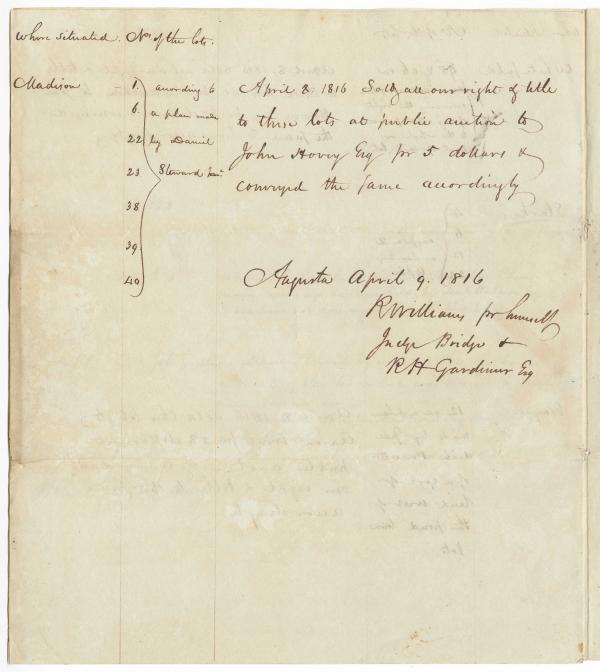 where situated. Nos of the lots.
Madison - 1. according to
6. a plan made
22 by Daniel
23 Steward Junr
38
39
40
April 2. 1816 Sold all our right & title
to these lots at public auction to
John Hovey Esq for 5 dollars &
conveyed the same accordingly
Augusta April 9. 1816
R Williams for himself
Judge Bridge &
R H Gardiner Esq